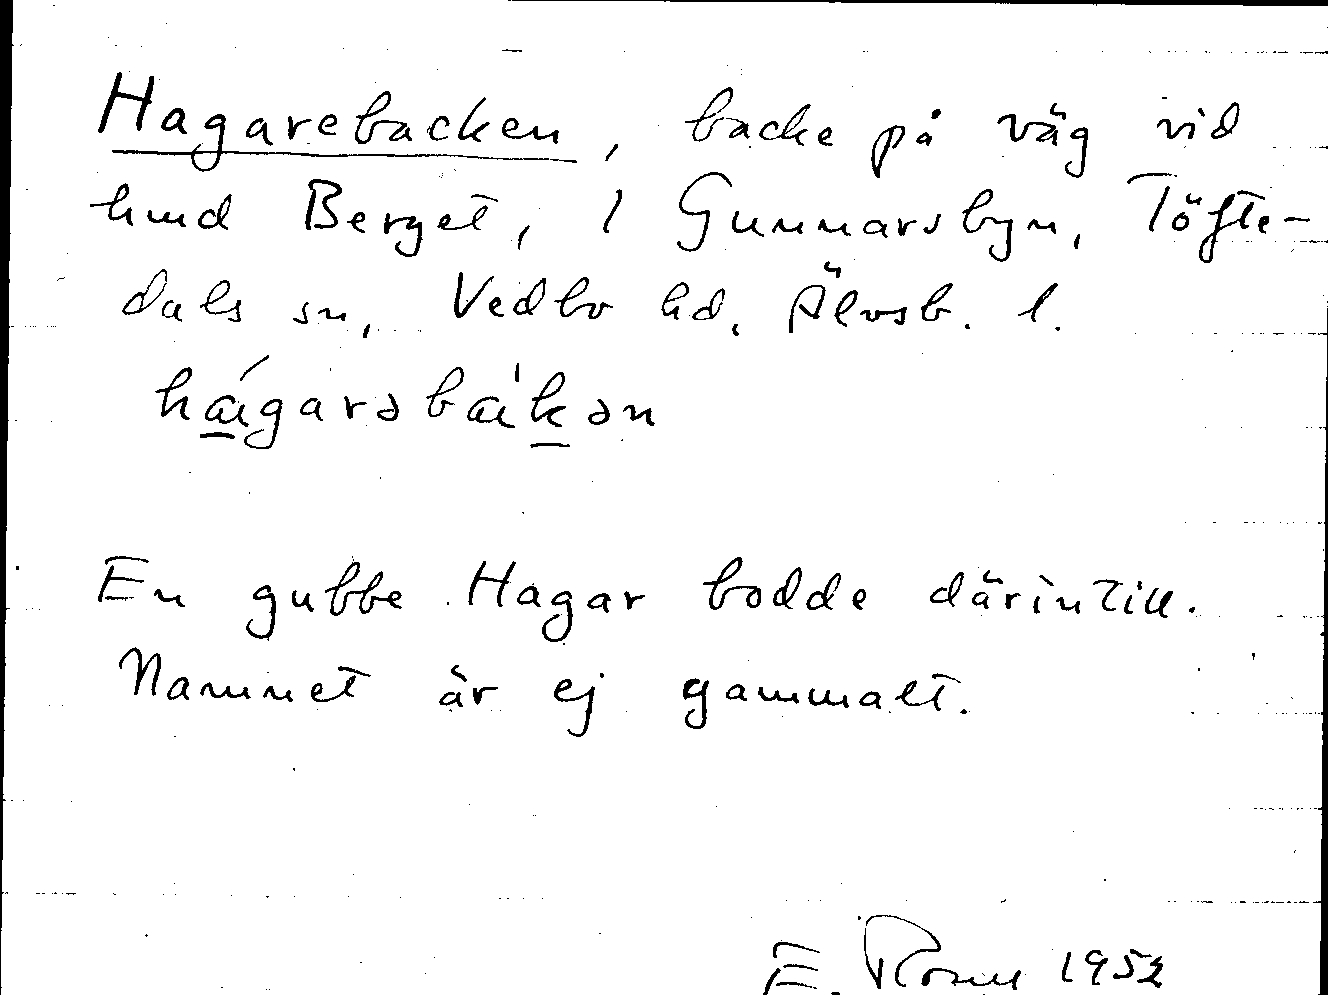 Hagarebacken, backe på väg vid
hmd Berget, i Gunnarsbyn, Töfte-
dals sn, Vedbo hd, Älvsb. l.
hágarəbákən
En gubbe Hagar bodde därintill.
Namnet är ej gammalt.
E. 1952